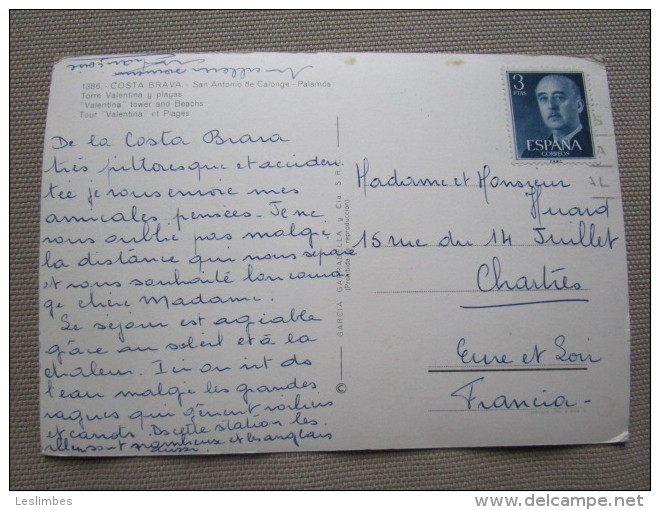 1386 - COSTA BRAVA - San Antonio de Calonge - Palamós
Torre Valentina y playas
"Valentina" tower and Beachs
Tour "Valentina" et Plages
De la Costa Brava
très pittoresque et acciden
tée je vous envoie mes
amicales pensées. Je ne
vous oublie pas malgré
la distance qui nous sépare
et vous souhaite bon coura
ge chère Madame.
Le séjour est agréable
grâce au soleil et à la
chaleur. Ici on vit ds
l'eau malgré les grandes
vagues qui gênent voiliers
et canots. Ds cette station les
sont nombreux et les anglais
aussi.
GARCIA GARRABELLA y Cía S.R.C.
(Prohibida la reproducción)
©
3
PTAS
ESPAÑA
CORREOS
Madame et Monsieur
Huard
15 rue du 14 Juillet
Chartres
Eure et Loir
Francia -
Leslimbes
www.delcampe.net